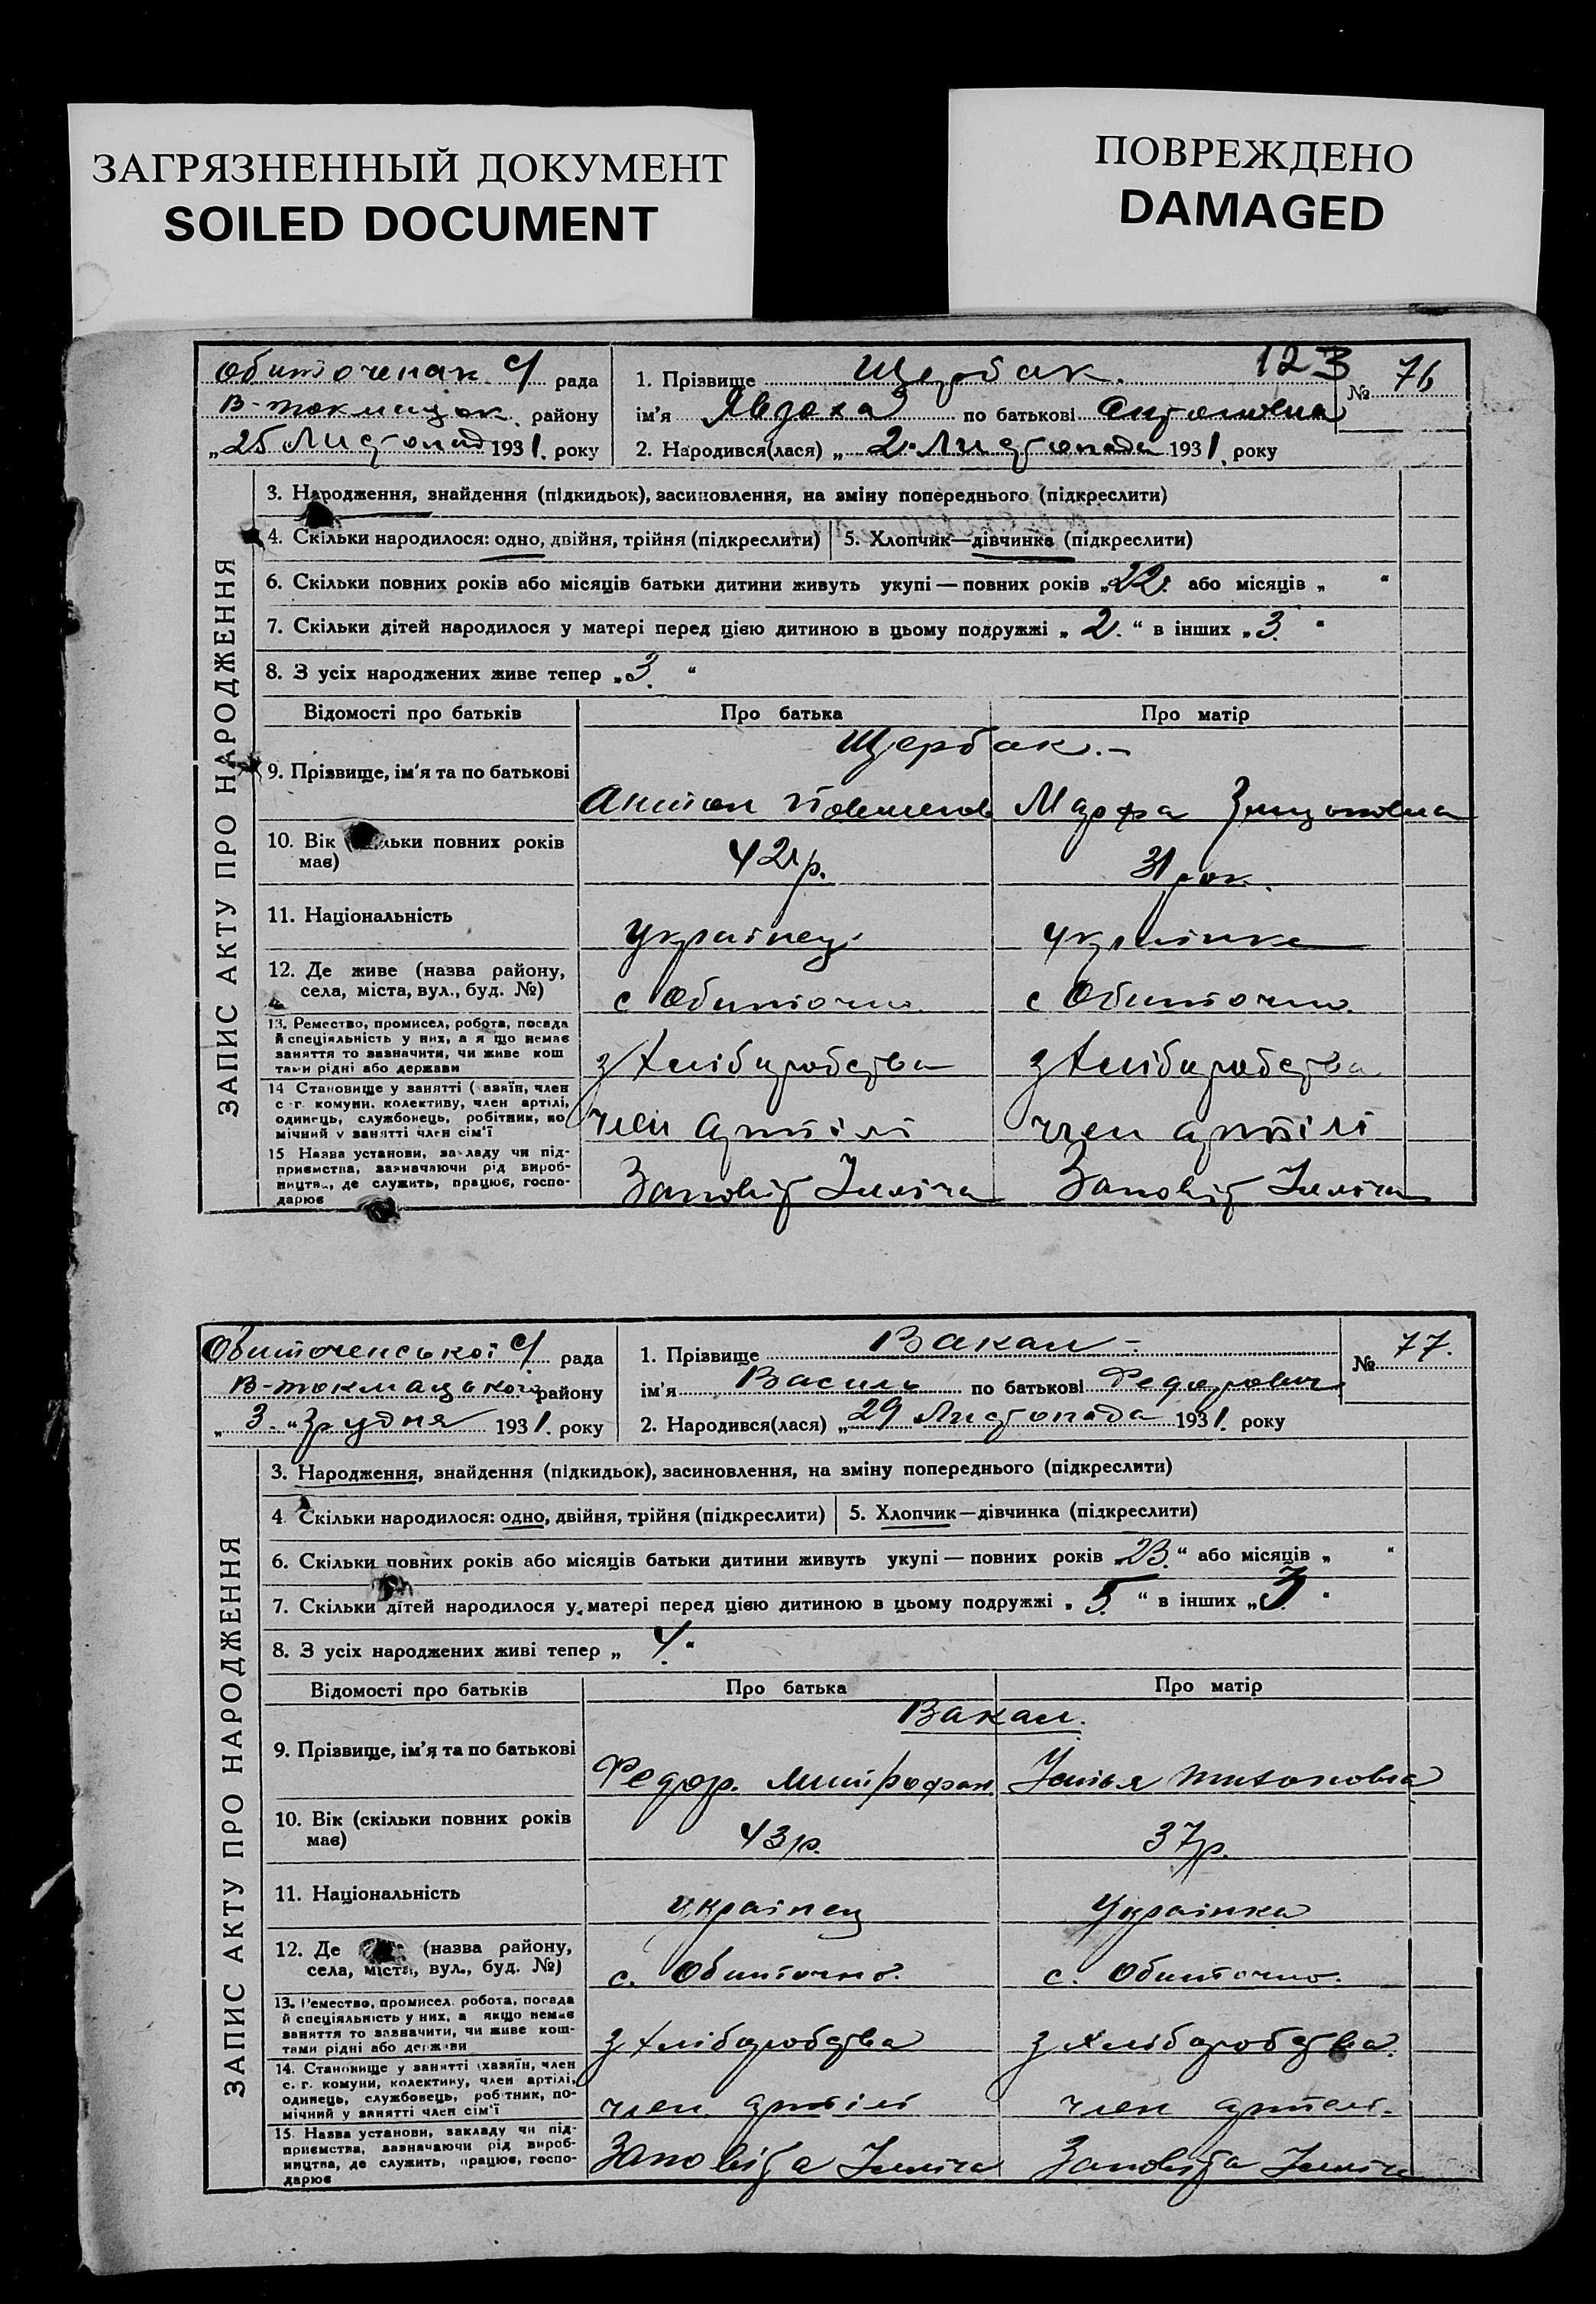 ЗАГРЯЗНЕННЫЙ ДОКУМЕНТ
SOILED DOCUMENT
ПОВРЕЖДЕНО
DAMAGED
123
Обиточенак с/ рада
В-токмацьк району
„25 Листопад 1931. року
1. Прізвище Щербак.
№ 76
ім'я Явдоха по батькові Антоновна
2. Народився(лася) „2" Листопада 1931. року
ЗАПИС АКТУ ПРО НАРОДЖЕННЯ
3. Народження, знайдення (підкидьок), засиновлення, на зміну попереднього (підкреслити)
4. Скільки народилося: одно, двійня, трійня (підкреслити) 5. Хлопчик—дівчинка (підкреслити)
6. Скільки повних років або місяців батьки дитини живуть укупі — повних років „22. або місяців „ “
7. Скільки дітей народилося у матері перед цією дитиною в цьому подружжі „ 2. “ в інших „3. “
8. З усіх народжених живе тепер „3. “
Відомості про батьків Про батька Про матір
Щербак.-
9. Прізвище, ім'я та по батькові
Антон Марфа
10. Вік ьки повних років
має)
42 р. 31 рок.
11. Національність
українець українка
12. Де живе (назва району,
села, міста, вул., буд. №)
с Обиточно с Обиточно.
13. Ремество, промисел, робота, посада
й спеціяльність у них, а я що немає
заняття то зазначити, чи живе кош
тами рідні або держави
з Хліборобства з Хліборобства
14 Становище у занятті ( азяїн, член
с г. комуни, колективу, член артілі,
одинець, службонець, робітник, по
мічний у занятті член сім'ї
член артілі член артілі
15 Назва установи, закладу чи під-
приємства, зазначаючи рід вироб-
ництва, де служить, працює, госпо-
дарює
Заповіт Ілліча Заповіт Ілліча
Обиточенської с/ рада
В-токмацького району
„3. “ Грудня 1931. року
1. Прізвище Вакал -
№ 77.
ім'я Василь по батькові Федорович
2. Народився(лася) „29 Листопада 1931. року
ЗАПИС АКТУ ПРО НАРОДЖЕННЯ
3. Народження, знайдення (підкидьок), засиновлення, на зміну попереднього (підкреслити)
4. Скільки народилося: одно, двійня, трійня (підкреслити) 5. Хлопчик—дівчинка (підкреслити)
6. Скільки повних років або місяців батьки дитини живуть укупі — повних років „23. “ або місяців „ “
7. Скільки дітей народилося у матері перед цією дитиною в цьому подружжі „ 5. “ в інших „ “
8. З усіх народжених живі тепер „ 4. “
Відомості про батьків Про батька Про матір
Вакал.
9. Прізвище, ім'я та по батькові
Федор. Митрофан Титоновна
10. Вік (скільки повних років
має)
43 р. 37 р.
11. Національність
українец Українка
12. Де (назва району,
села, міста, вул., буд. №)
с. Обиточно. с. Обиточно.
13. Ремество, промисел, робота, посада
й спеціяльність у них, а якщо немає
заняття то зазначити, чи живе кош-
тами рідні або держави
з Хліборобства з Хліборобства.
14. Становище у занятті (хазяїн, член
с. г. комуни, колективу, член артілі,
одинець, службовець, робітник, по-
мічний у занятті член сім'ї
член артілі член артелі.
15. Назва установи, закладу чи під-
приємства, зазначаючи рід вироб-
ництва, де служить, працює, госпо-
дарює
Заповіта Ілліча Заповіта Ілліча